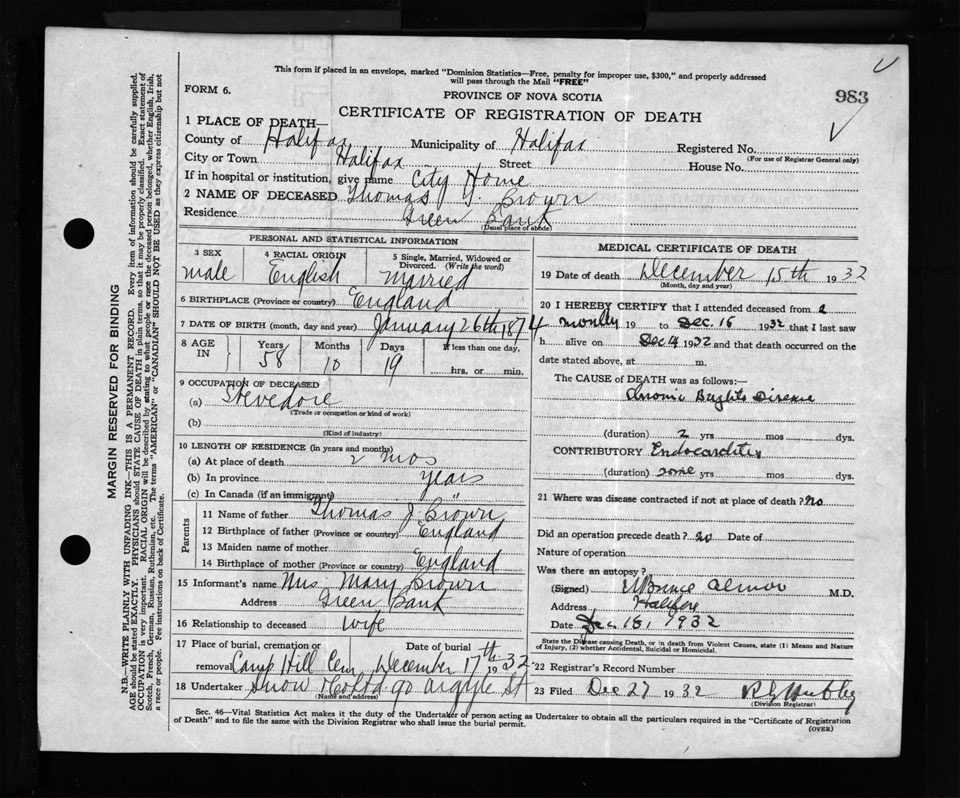 This form if placed in an envelope, marked "Dominion Statistics—Free, penalty for improper use, $300," and properly addressed
will pass through the Mail "FREE"
FORM 6.
PROVINCE OF NOVA SCOTIA
983
CERTIFICATE OF REGISTRATION OF DEATH
1 PLACE OF DEATH—
County of Halifax Municipality of Halifax Registered No.
(For use of Registrar General only)
City or Town Halifax Street House No.
If in hospital or institution, give name City Home
2 NAME OF DECEASED Thomas J. Brown
Residence Green Bank
(Usual place of abode)
PERSONAL AND STATISTICAL INFORMATION
3 SEX male
4 RACIAL ORIGIN English
5 Single, Married, Widowed or Divorced. (Write the word) Married
6 BIRTHPLACE (Province or country) England
7 DATE OF BIRTH (month, day and year) January 26th 1874
8 AGE IN
Years 58 Months 10 Days 19 If less than one day, hrs. or min.
9 OCCUPATION OF DECEASED
(a) Stevedore
(Trade or occupation or kind of work)
(b)
(Kind of industry)
10 LENGTH OF RESIDENCE (in years and months)
(a) At place of death 2 mos
(b) In province years
(c) In Canada (if an immigrant) "
Parents
11 Name of father Thomas J Brown
12 Birthplace of father (Province or country) England
13 Maiden name of mother
14 Birthplace of mother (Province or country) England
15 Informant's name Mrs Mary Brown
Address Green Bank
16 Relationship to deceased wife
17 Place of burial, cremation or removal Date of burial
Camp Hill Cem. December 17th 1932
18 Undertaker Snow & Co Ltd. 90 Argyle St
(Name and address)
MEDICAL CERTIFICATE OF DEATH
19 Date of death December 15th 1932
(Month, day and year)
20 I HEREBY CERTIFY that I attended deceased from 2
19 to Dec. 15 1932 that I last saw
h alive on Dec 1932 and that death occurred on the
date stated above, at m.
The CAUSE of DEATH was as follows:—
Chronic Brights Disease
(duration) 2 yrs mos dys.
CONTRIBUTORY Endocarditis
(duration) some yrs mos dys.
21 Where was disease contracted if not at place of death? no
Did an operation precede death? no Date of
Nature of operation
Was there an autopsy?
(Signed) Almon M.D.
Address Halifax
Date Dec 1932
State the Disease causing Death, or in death from Violent Causes, state (1) Means and Nature
of Injury, (2) whether Accidental, Suicidal or Homicidal.
22 Registrar's Record Number
23 Filed Dec 27 1932
(Division Registrar)
Sec. 46—Vital Statistics Act makes it the duty of the Undertaker of person acting as Undertaker to obtain all the particulars required in the "Certificate of Registration
of Death" and to file the same with the Division Registrar who shall issue the burial permit.
(OVER)
MARGIN RESERVED FOR BINDING
N.B.—WRITE PLAINLY WITH UNFADING INK—THIS IS A PERMANENT RECORD. Every item of information should be carefully supplied.
AGE should be stated EXACTLY. PHYSICIANS should STATE CAUSE OF DEATH in plain terms, so that it may be properly classified. Exact statement of
OCCUPATION is very important. RACIAL ORIGIN will be described by stating to what people or race the deceased person belonged, whether English, Irish,
Scotch, French, German, Russian, Ruthenian, etc. The terms "AMERICAN" or "CANADIAN" SHOULD NOT BE USED as they express citizenship but not
a race or people. See instructions on back of Certificate.